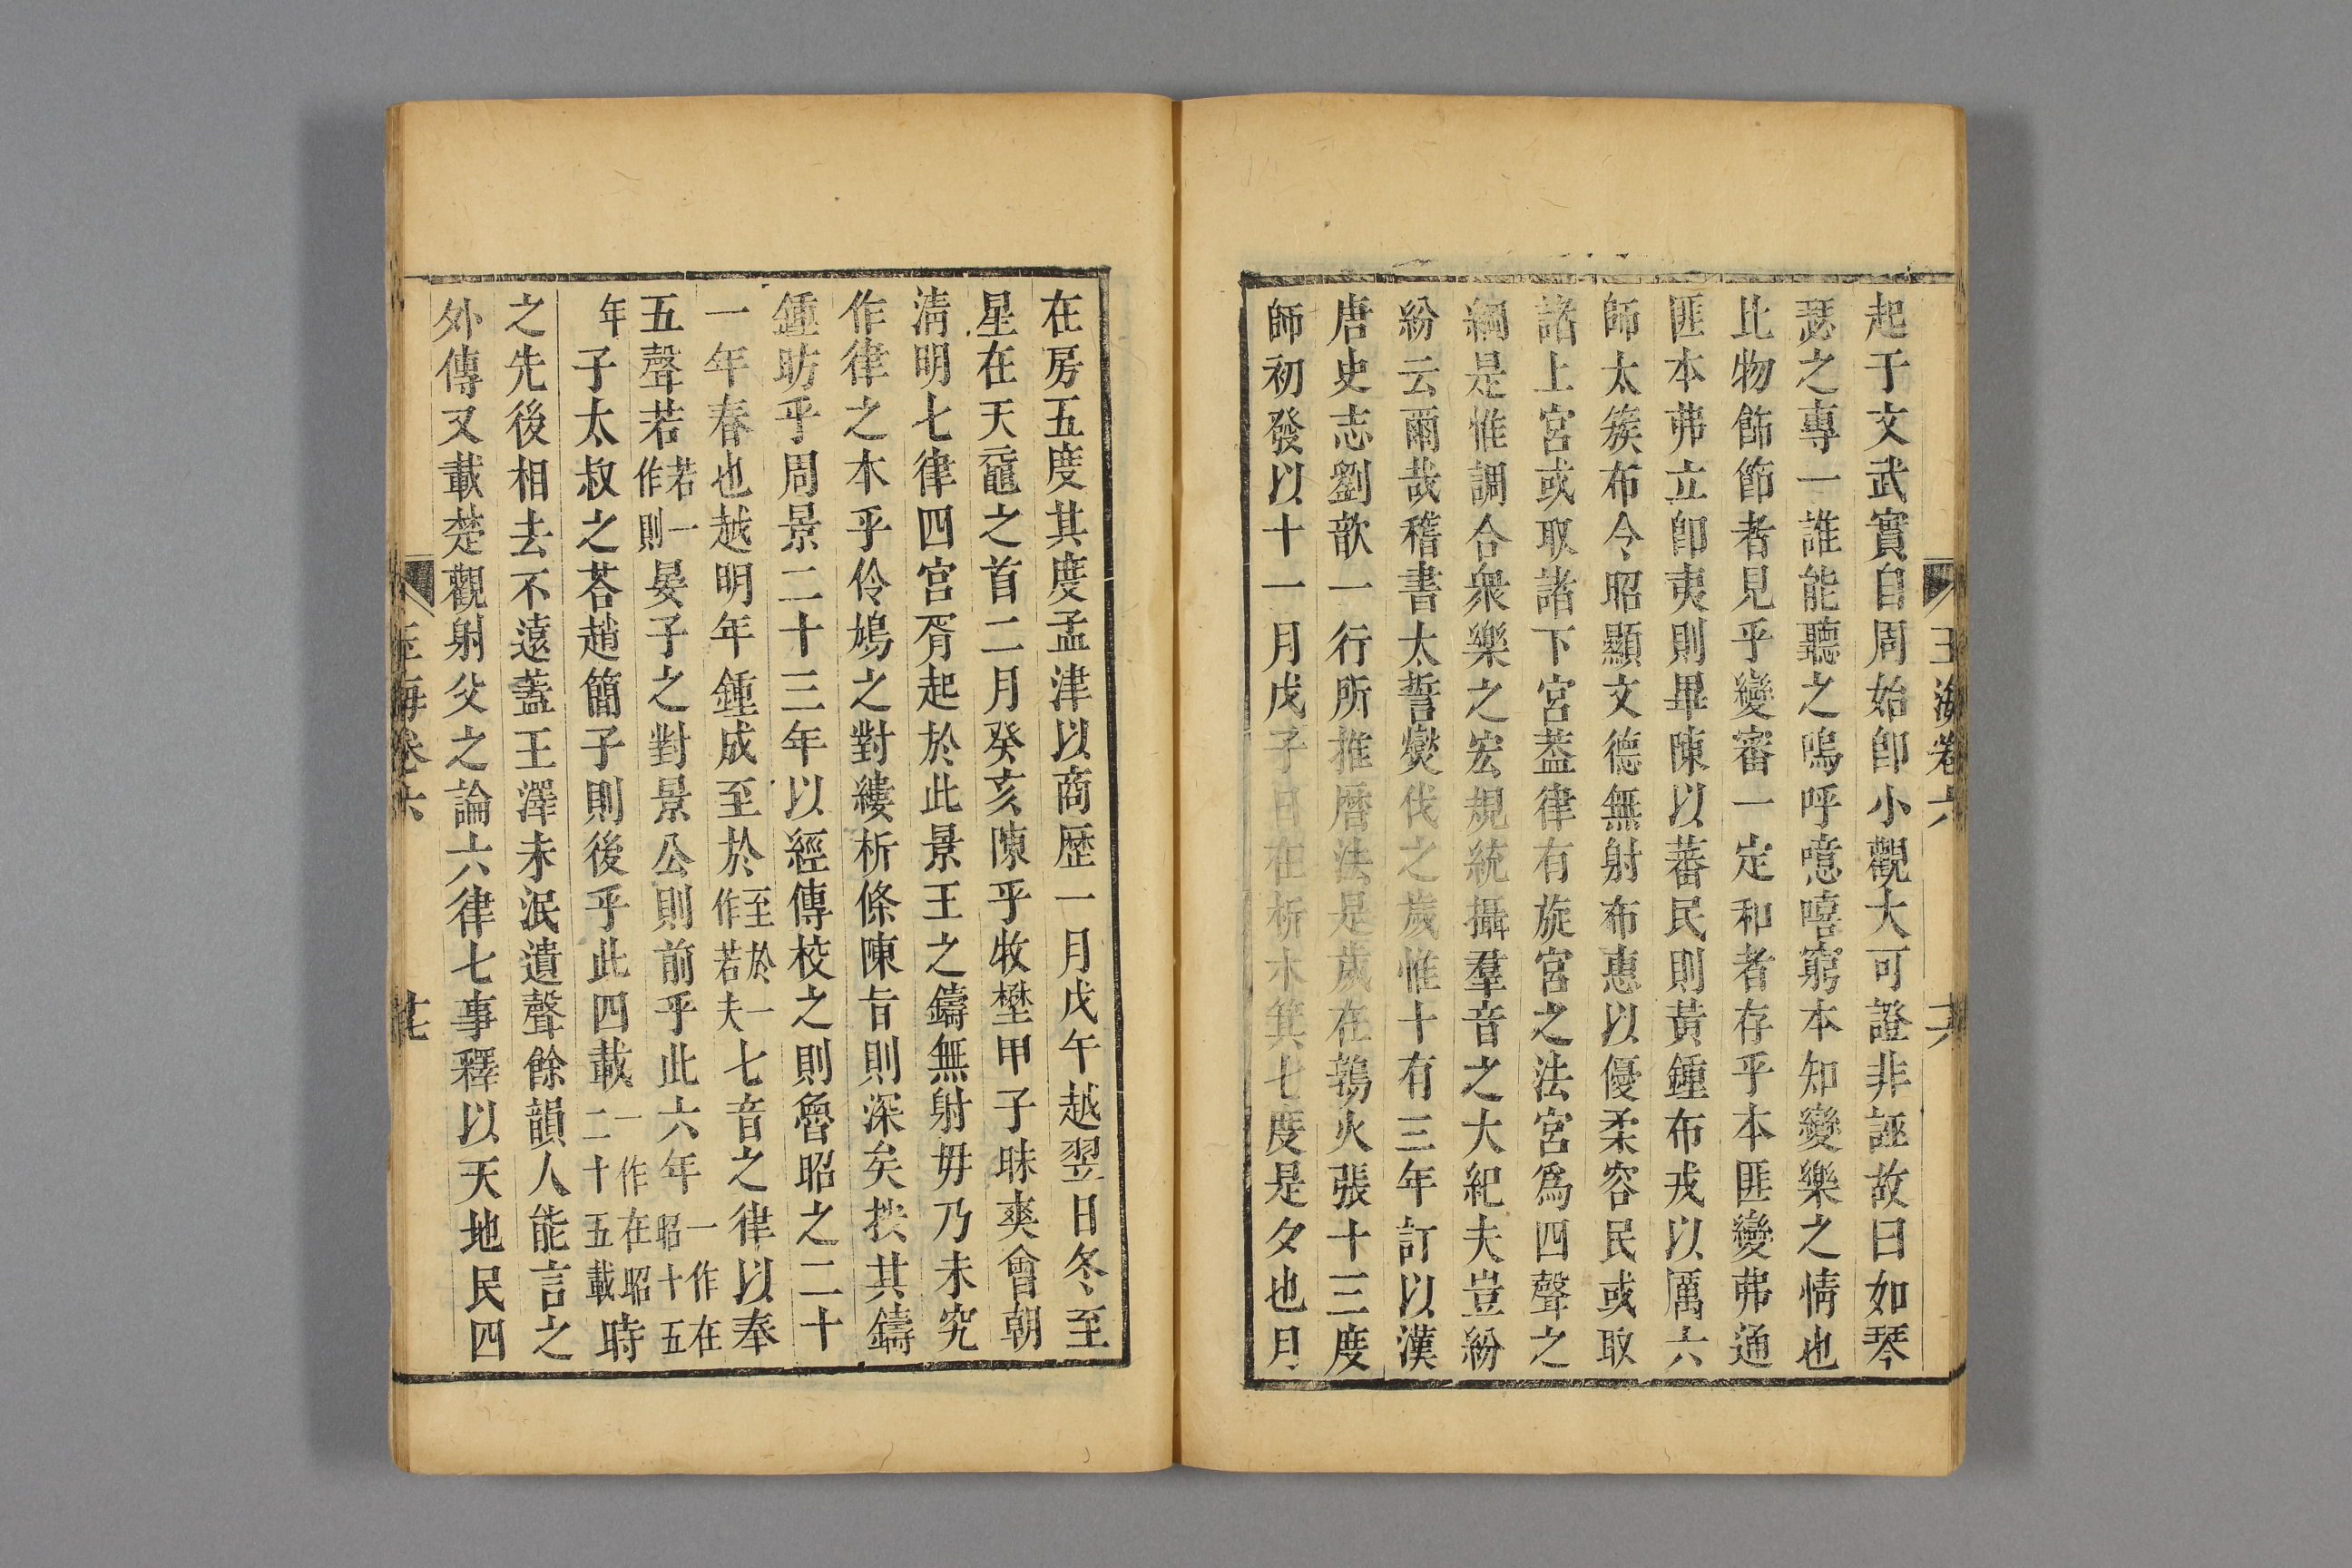 玉海卷六 十六
起于文武實自周始卽小觀大可證非誣故曰如琴
瑟之專一誰能聽之嗚呼噫嘻窮本知變樂之情也
比物飾節者見乎變審一定和者存乎本匪變弗通
匪本弗立卽夷則畢陳以蕃民則黃鍾布戎以厲六
師太蔟布令昭顯文德無射布惠以優柔容民或取
諸上宮或取諸下宮葢律有旋宮之法宮爲四聲之
綱是惟調合衆樂之宏規統攝羣音之大紀夫豈紛
紛云爾哉稽書太誓爕伐之歲惟十有三年訂以漢
唐史志劉歆一行所推曆法是歲在鶉火張十三度
師初發以十一月戊子日在析木箕七度是夕也月
在房五度其度孟津以商歷一月戊午越翌日冬至
星在天黿之首二月癸亥陳乎牧埜甲子昧爽會朝
淸明七律四宮胥起於此景王之鑄無射毋乃未究
作律之木乎伶鳩之對縷析條陳旨則深矣挨其鑄
鍾昉乎周景二十三年以經傳校之則魯昭之二十
一年春也越明年鍾成至於至於一作若夫七音之律以奉
五聲若若一作則晏子之對景公則前乎此六年一作在昭十五
年子太叔之荅趙簡子則後乎此四載一作在昭二十五載時
之先後相去不遠蓋王澤未泯遺聲餘韻人能言之
外傳又載楚觀射父之論六律七事釋以天地民四
玉海卷六 十七